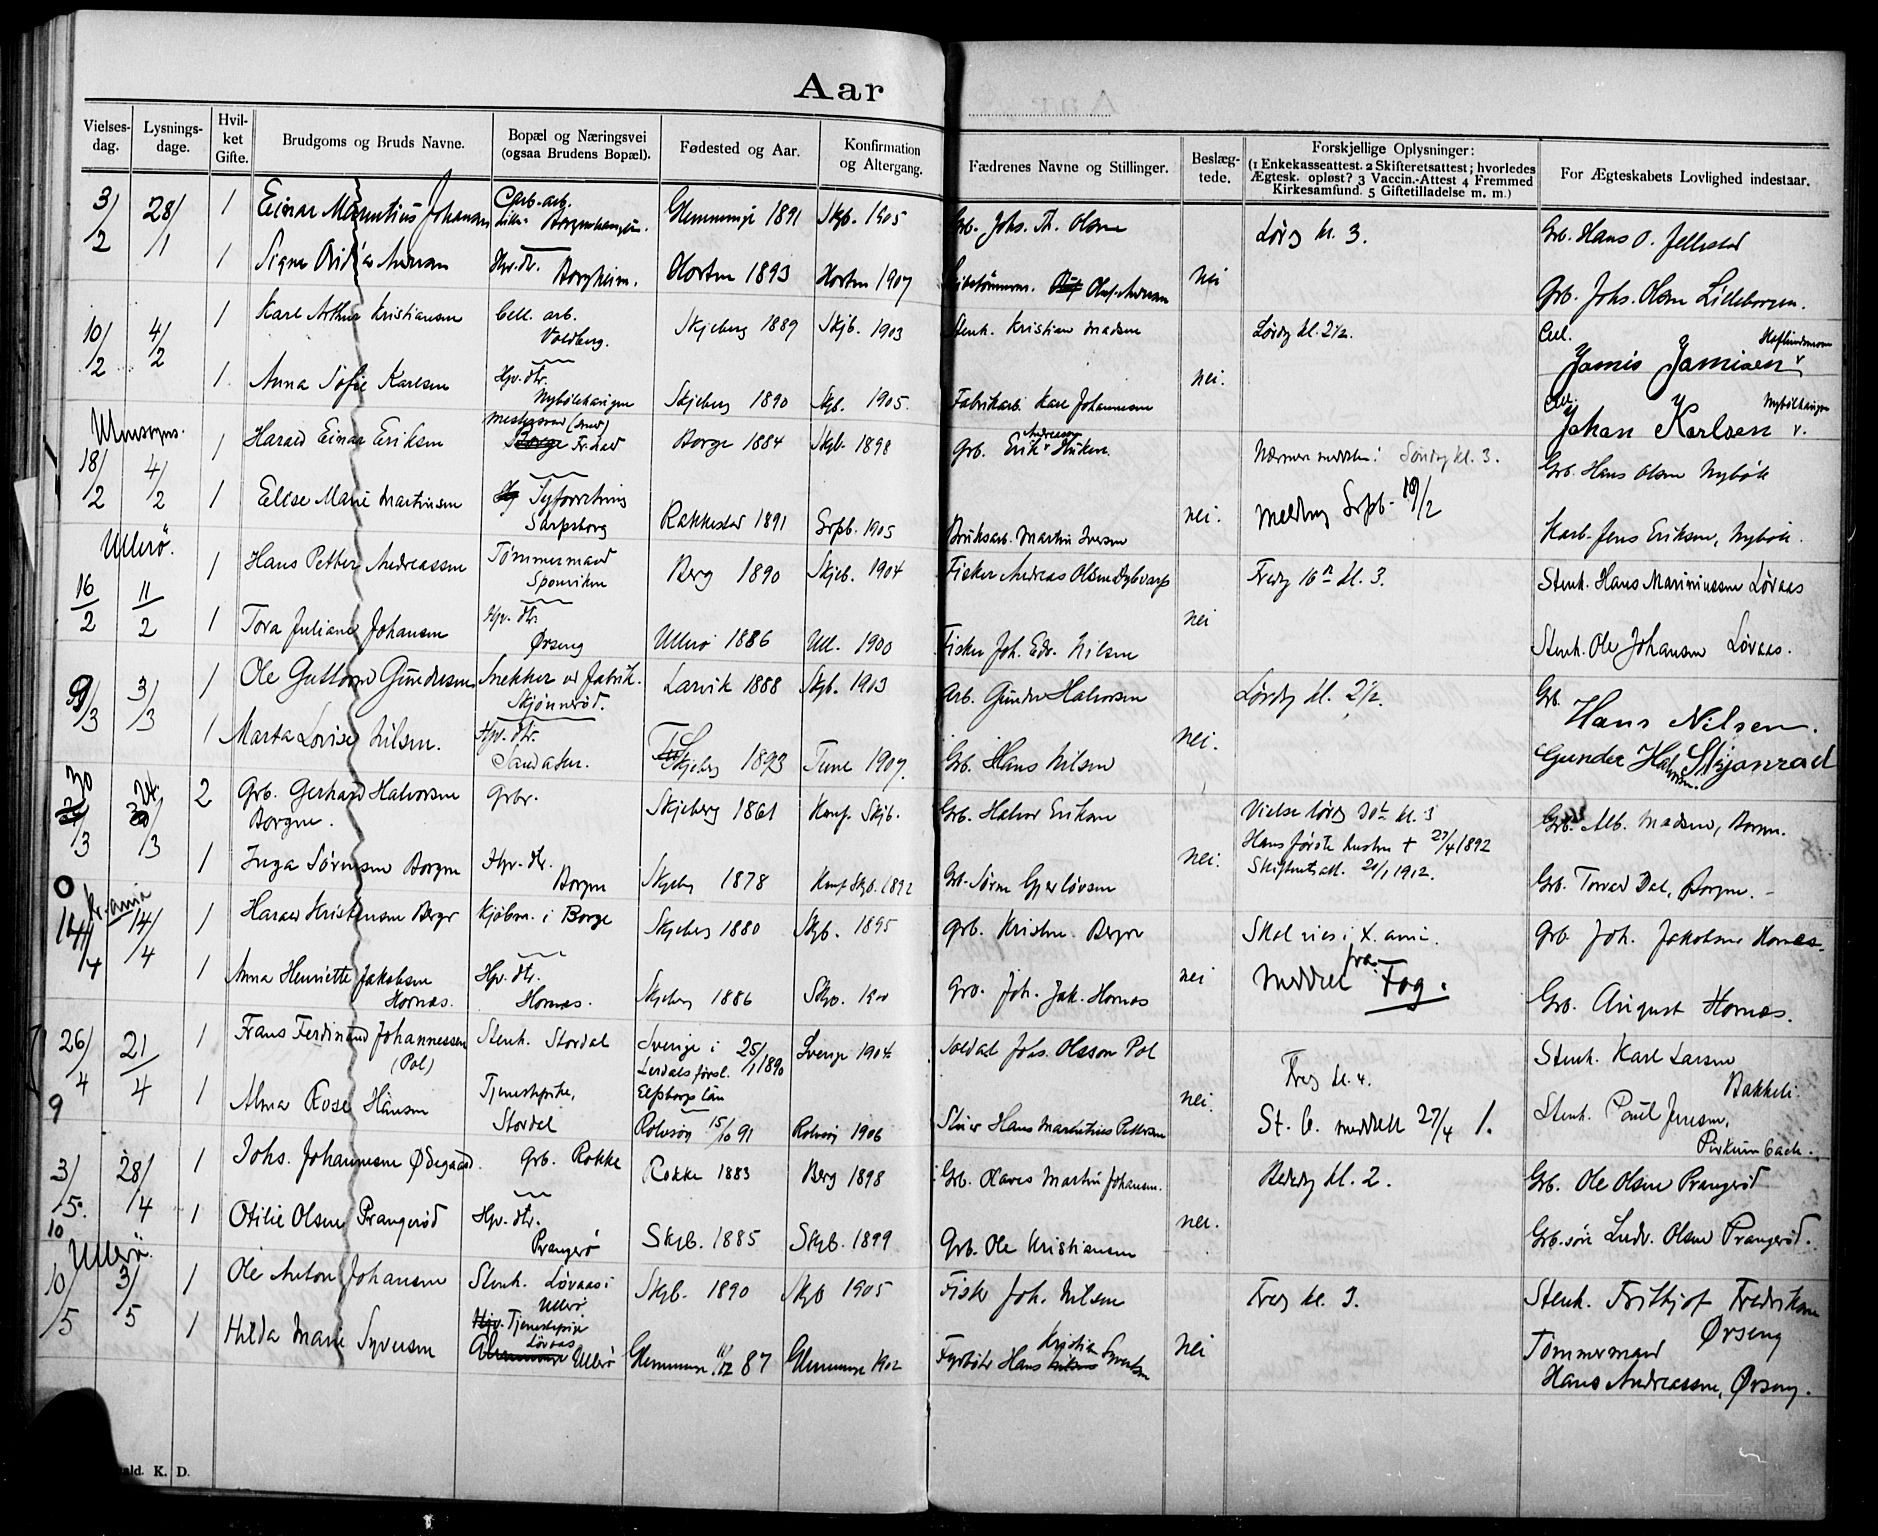 Aar
Vielses-dag.
Lysnings-dage.
Hvil-ket Gifte.
Brudgoms og Bruds Navne.
Bopæl og Næringsvei (ogsaa Brudens Bopæl).
Fødested og Aar.
Konfirmation og Altergang.
Fædrenes Navne og Stillinger.
Beslæg-tede.
Forskjellige Oplysninger: (1 Enkekasseattest. 2 Skifteretsattest; hvorledes Ægtesk. opløst? 3 Vaccin.-Attest 4 Fremmed Kirkesamfund. 5 Giftetilladelse m. m.)
For Ægteskabets Lovlighed indestaar.
3/2 28/1 1 Einar Johansen Glemminge 1891 Skjb. 1905 Grb. Johs. Th. Olsen Lørd kl. 3. Grb. Hans O.
1 Signe Hpv. dtr. Borgheim. Horten 1893 Horten 1907 nei Grb. Johs. Olsen Lilleborgen.
10/2 4/2 1 Karl Arthur Kristiansen Cell. arb. Voldberg. Skjeberg 1889 Skjb. 1903 Stenh. Kristian Madsen Lørdg kl. 2½. Cell. Jamis Jamisen
1 Anna Sofie Karlsen Hpv. dtr. Skjeberg 1890 Skjb. 1905. Fabrikarb. Karl Johannesen nei. Johan Karlsen
Utensogns.
18/2 4/2 1 Harald Einar Eriksen Borge 1884 Skjb. 1898 Grb. Erik Andreasen Søndag kl. 3. Grb. Hans Olsen Nybøle
1 Elise Marie Martinsen Syforretning Sarpsborg Rakkestad 1891 Srpb. 1905 Bruksarb. Martin Iversen nei. Melding Srpb. 19/2 Jens Eriksen, Nybøle.
Ullerö.
16/2 11/2 1 Hans Petter Andreassen Tømmermand Sponviken Berg 1890 Skjeb. 1904 Fisker Andreas Olsen Fredg 16de kl. 3. Stenh. Hans Mariniussen Løvaas
1 Tora Juliane Johansen Hpv. dtr. Ørseng Ullerø 1886 Ull. 1900 Fisker Joh. Edv. Nilsen nei Stenh. Ole Johansen Løvaas.
9/3 3/3 1 Ole Guttorm Gundersen Snekker ved Fabrik. Skjønnerød. Larvik 1888 Skjb. 1903 Arb. Gunder Halvorsen Lørdg kl. 2½. Grb. Hans Nilsen.
1 Marta Lovise Nilsen. Hpv. dtr. Sandaker. Skjeberg 1893 Tune 1907. Grb. Hans Nilsen nei. Gunder Halvorsen Skjønrød
30/3 24/3 2 Grb. Gerhard Halvorsen Borgen. Grbr. Skjeberg 1861 Konf. Skjb. Grb. Halvor Eriksen Vielse lørdg 30te kl. 3 Grb. Alb. Madsen, Borgen.
1 Inga Sørensen Borgen Hpv. dtr. Borgen Skjeberg 1878 Konf Skjb. 1892 Grb. Søren Gjerløvsen nei. Hans første hustru † 27/4 1892 Skifteretsatt. 21/1 1912. Grb. Torvald Dal, Borgen.
14/4 14/4 1 Harald Kristensen Berger Kjøbm. i Borge Skjeberg 1880 Skjb. 1895 Grb. Kristen Berger Skal vies i X.ania. Grb. Joh. Jakobsen Hornæs.
1 Anna Henriette Jakobsen Hornæs. Hpv. dtr. Hornæs. Skjeberg 1886 Skjb. 1900 Grb. Joh. Jak. Hornæs nei Meddel fra Fog. Grb. August Hornæs.
26/4 21/4 1 Frans Ferdinand Johannessen (Pol) Stenh. Stordal Sverige i Lerdalsførsl. 25/1 1890 Elfsborgs län Sverige 1904 Soldat Johs. Olsson Pol Fredg kl. 4. Stenh. Karl Larsen Bakkeli.
9
1 Alma Rose Hansen Tjenestepike, Stordal Rolvsøy 15/10 91 Rolvsøy 1906 Hans Martinius Pettersen nei. St. B. meddelt 27/4 1. Stenh. Paul Jensen,
3/5. 28/4 1 Johs. Johannesen Ødegaard. Grb. Rokke Rokke 1883 Berg 1898 Grb. Olaves Martin Johansen. Bededg kl. 2. Grb. Ole Olsen Prangerød
10
1 Otilie Olsen Prangerød Hpv. dtr. Prangerø Skjb. 1885 Skjb. 1899 Grb. Ole Kristiansen nei. Grb.søn Ludv. Olsen Prangerød.
Ullerö.
10/5 3/5 1 Ole Anton Johansen Stenh. Løvaas i Ullerø Skjb. 1890 Skjb 1905 Fisker Joh. Nilsen Fredg kl. 3. Stenh. Frithjof Fredriksen Ørseng
1 Hilda Marie Syversen Tjenestepige Løvaas Ullerø Glemminge 11/12 87 Glemminge 1902 Fyrbøter Hans Kristian Syvertsen nei Tømmermand Hans Andreassen, Ørseng.
ald. K. D.